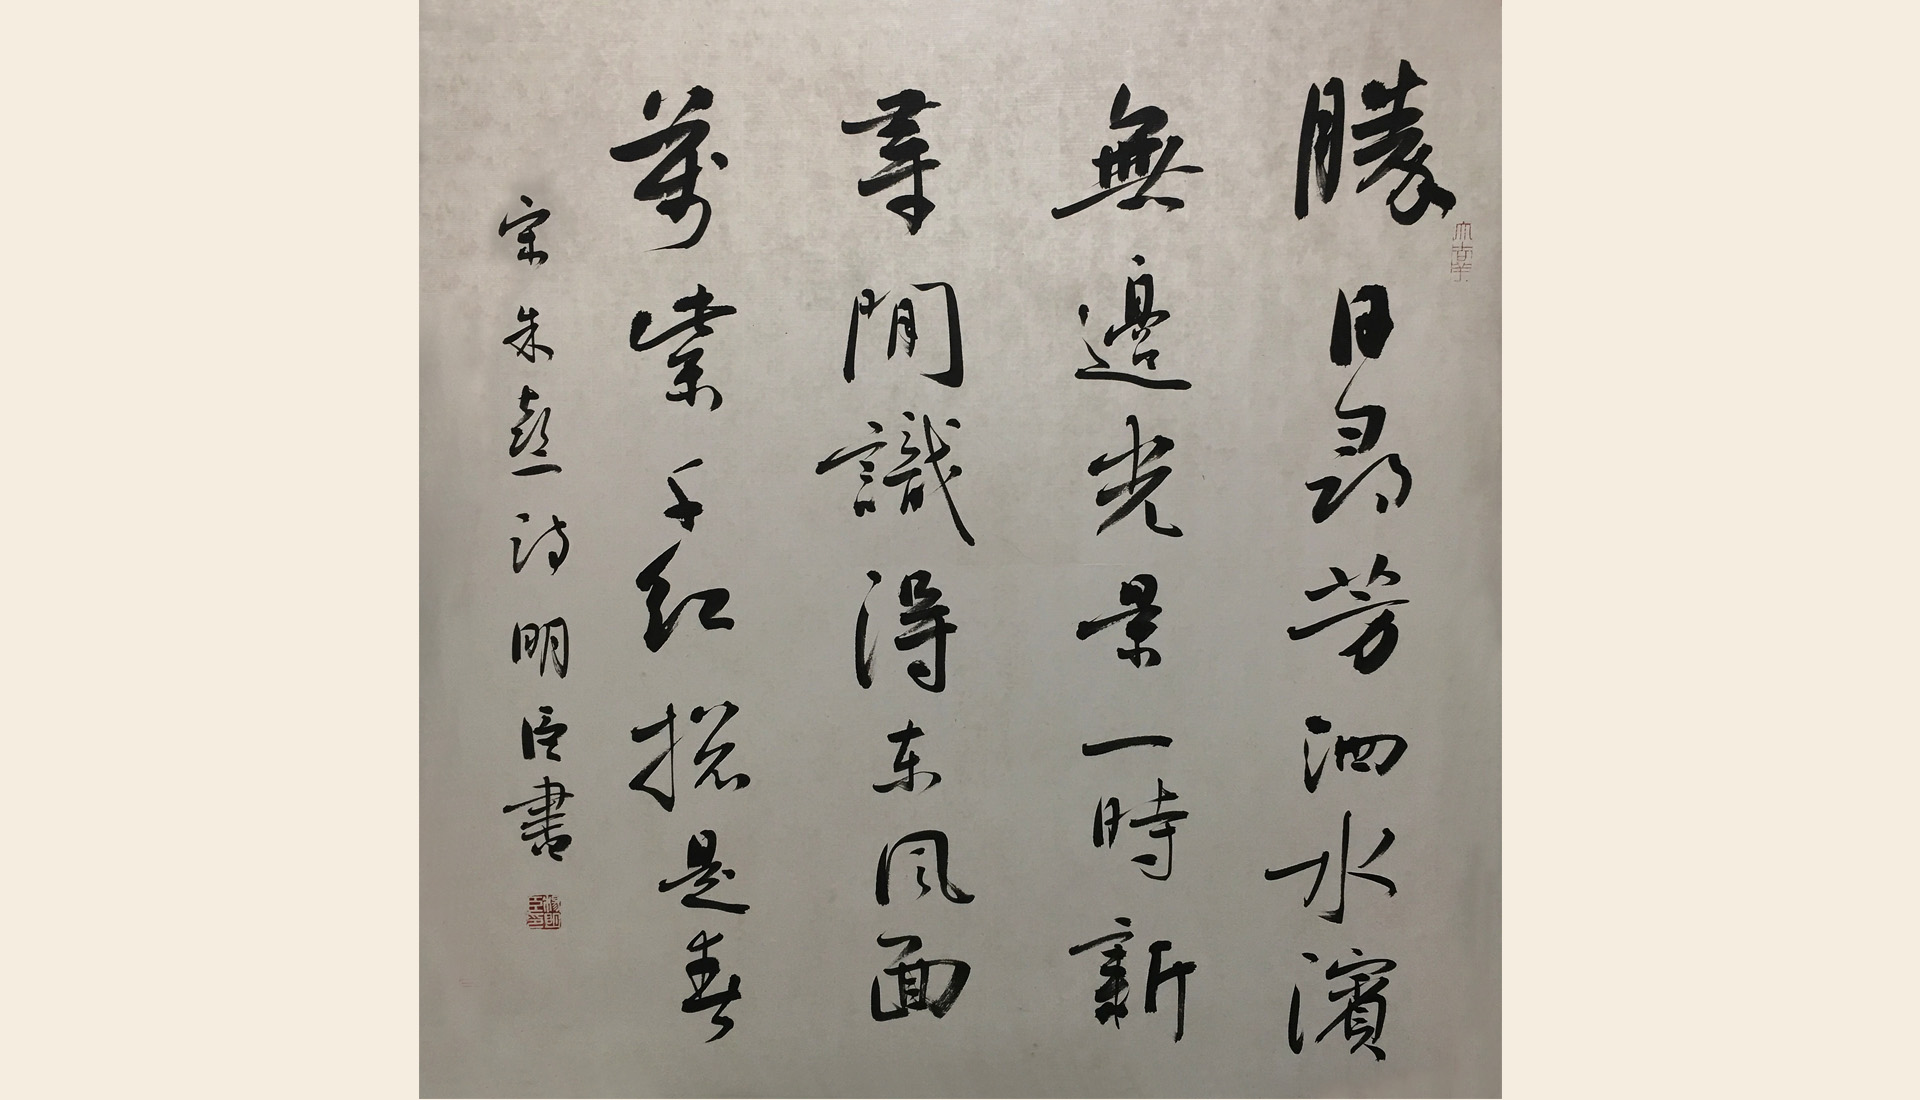 勝日尋芳泗水濱
無邊光景一時新
等閒識得东風面
萬紫千红揔是春
宋朱熹诗明臣書